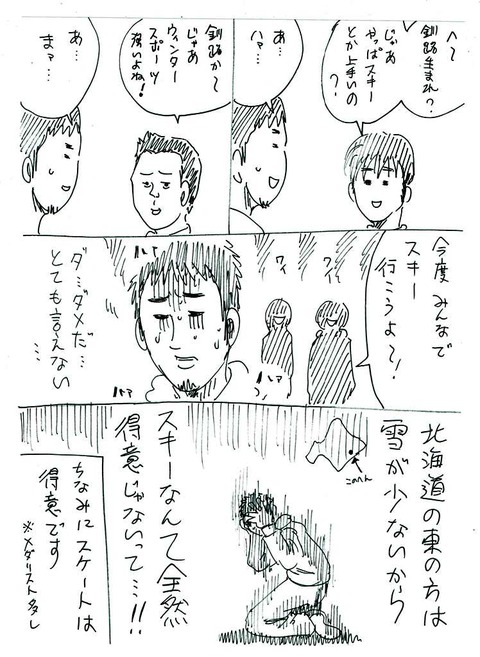 へ〜
釧路生まれ?
じゃあ
やっぱスキー
とか上手いの
?
あ…
ハァ…
釧路か〜
じゃあ
ウィンター
スポーツ
強いよね!
あ…
まァ…
今度みんなで
スキー
行こうよ〜!
ワイ
ワイ
ハァ
ハァ
ハァ
ダ…ダメだ…
とても言えない
…
北海道の東の方は
雪が少ないから
このへん
スキーなんて全然
得意じゃないって…!!
ちなみにスケートは
得意です
※メダリスト多し